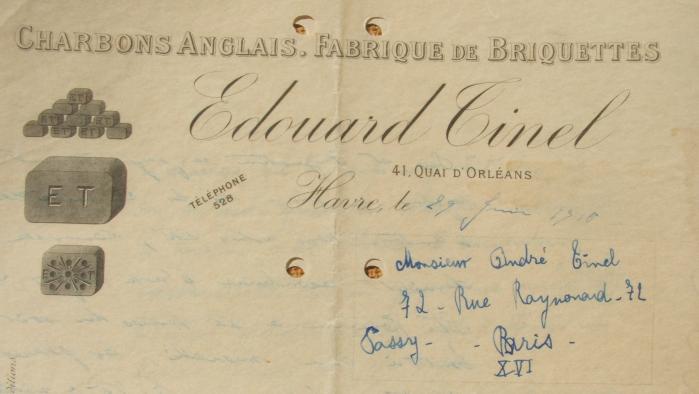 CHARBONS ANGLAIS. FABRIQUE DE BRIQUETTES
Edouard Tinel
41, QUAI D'ORLÉANS
TÉLÉPHONE
528
Havre, le 29 Juin 1910
ET
ET
ET
ET
E T
E T
Monsieur André Tinel
72 - Rue Raynouard - 72
Passy - - Paris -
XVI